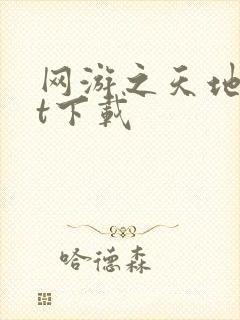 网游之天地
t下载
哈德森